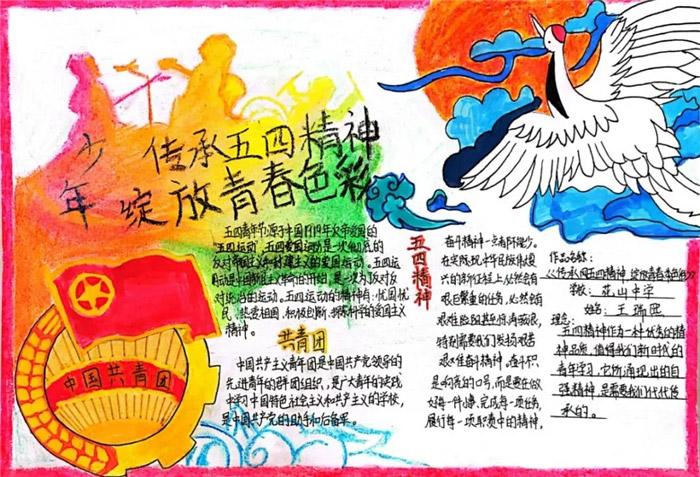 少年 传承五四精神
绽放青春色彩
五四青年节源于中国1919年反帝爱国的
"五四运动",五四爱国运动是一次彻底的
反对帝国主义和封建主义的爱国运动。五四运
动是中国新民主主义革命的开始,是一次为
反对
的运动。五四运动的精神有:忧国忧
民、热爱祖国、积极创新、探索科学的爱国主义
精神。
共青团
中国共产主义青年团是中国共产党领导的
先进青年的群团组织,是广大青年在实践
中学习中国特色社会主义和共产主义的学校,
是中国共产党的助手和后备军。
中国共青团
五四精神
奋斗精神一点都不能少。
在实现中华民族伟大复
兴的新征程上必然会有
艰巨繁重的任务,必然会有
艰难险阻甚至惊涛骇浪,
特别需要我们发扬艰苦
艰难奋斗精神。奋斗不只
是响亮的口号,而是要在做
好每一件小事、完成每一项任务,
履行每一项职责中的精神。
作品名称:
《传承五四精神,绽放青春色彩》
学校:花山中学
姓名:王瑞
理念:
五四精神作为一种优秀的精
神品质,值得我们新时代的
青年学习,它所涌现出的自
强精神,是需要我们代代传
承的。